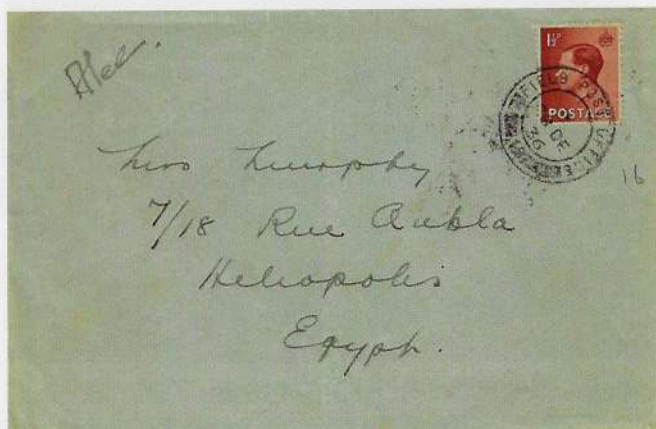 Alec.
1½D
POSTA
FIELD POST OFFICE
DE
36
16
Miss Murphy
7/18 Rue Aubla
Heliopolis
Egypt.